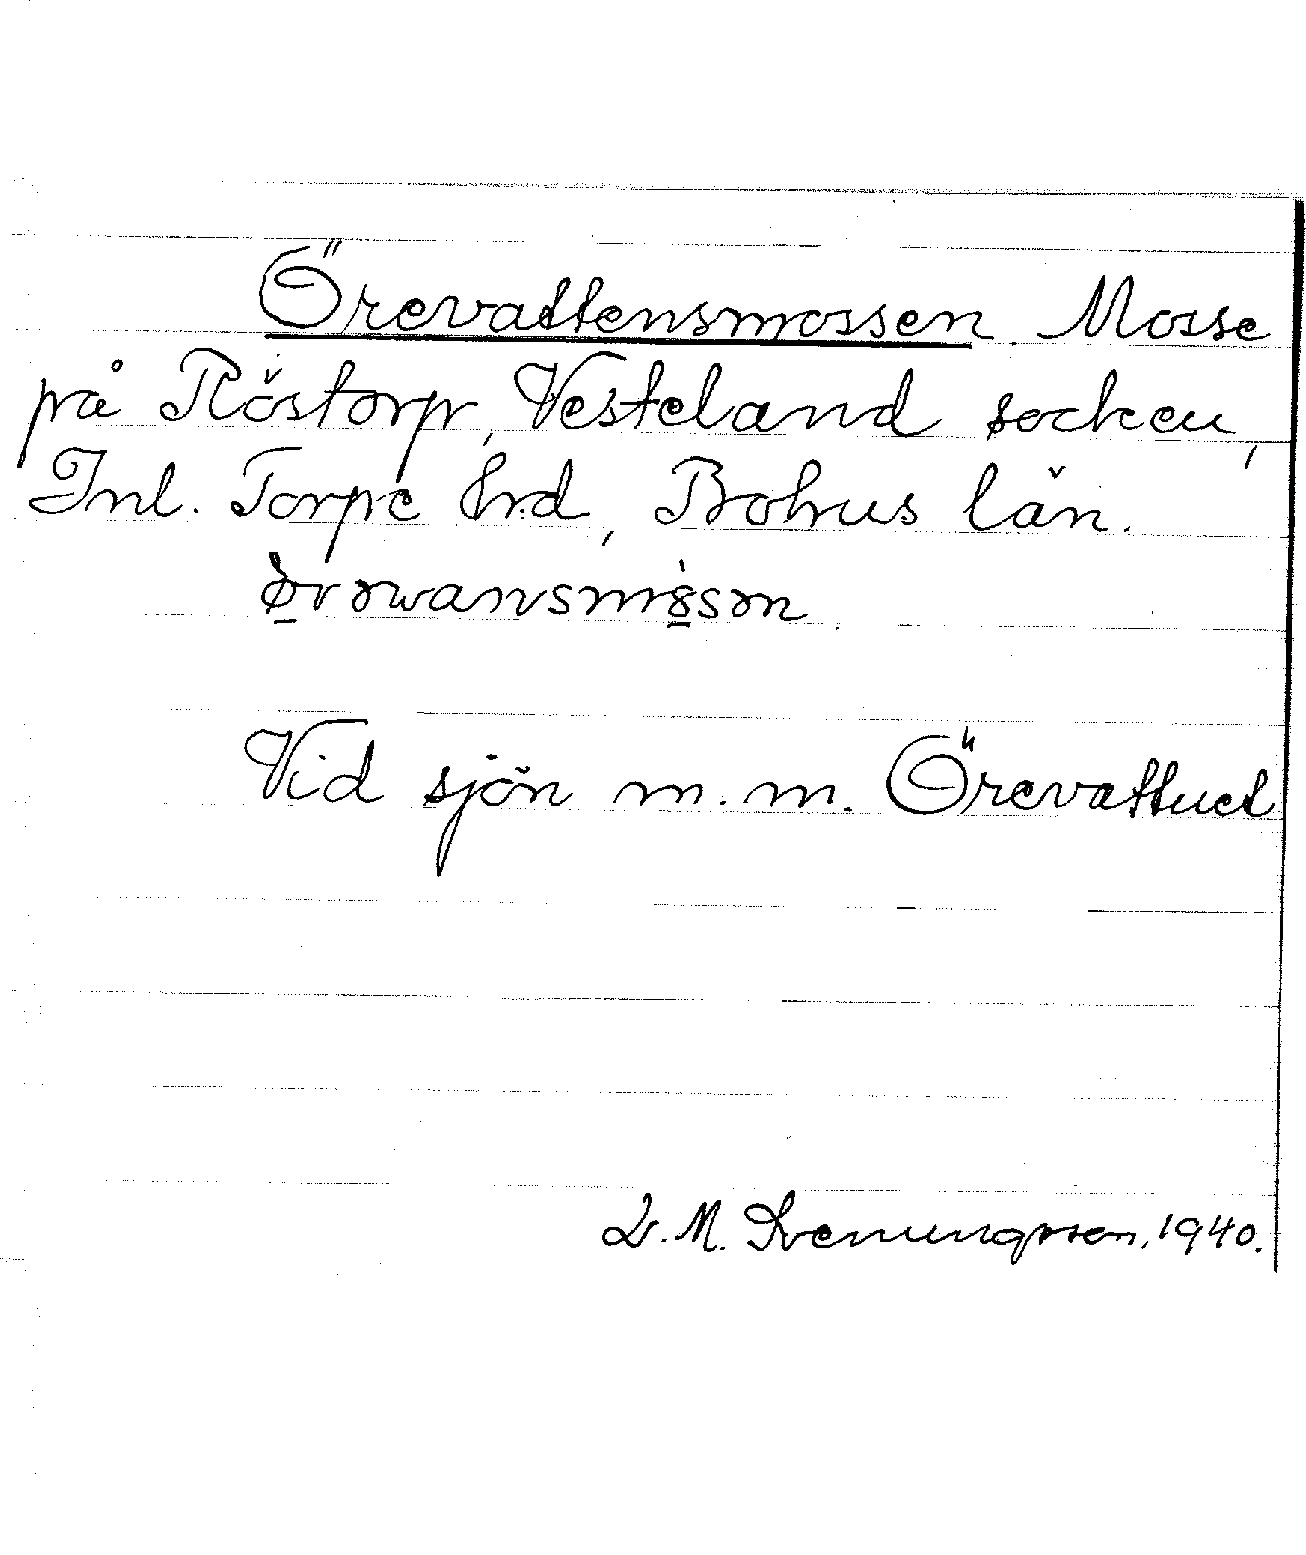 Örevattensmossen. Mosse
på Röstorp, Vesteland socken,
Inl. Torpe hrd, Bohus län.
Vid sjön m. m. Örevattnet
M. 1940.